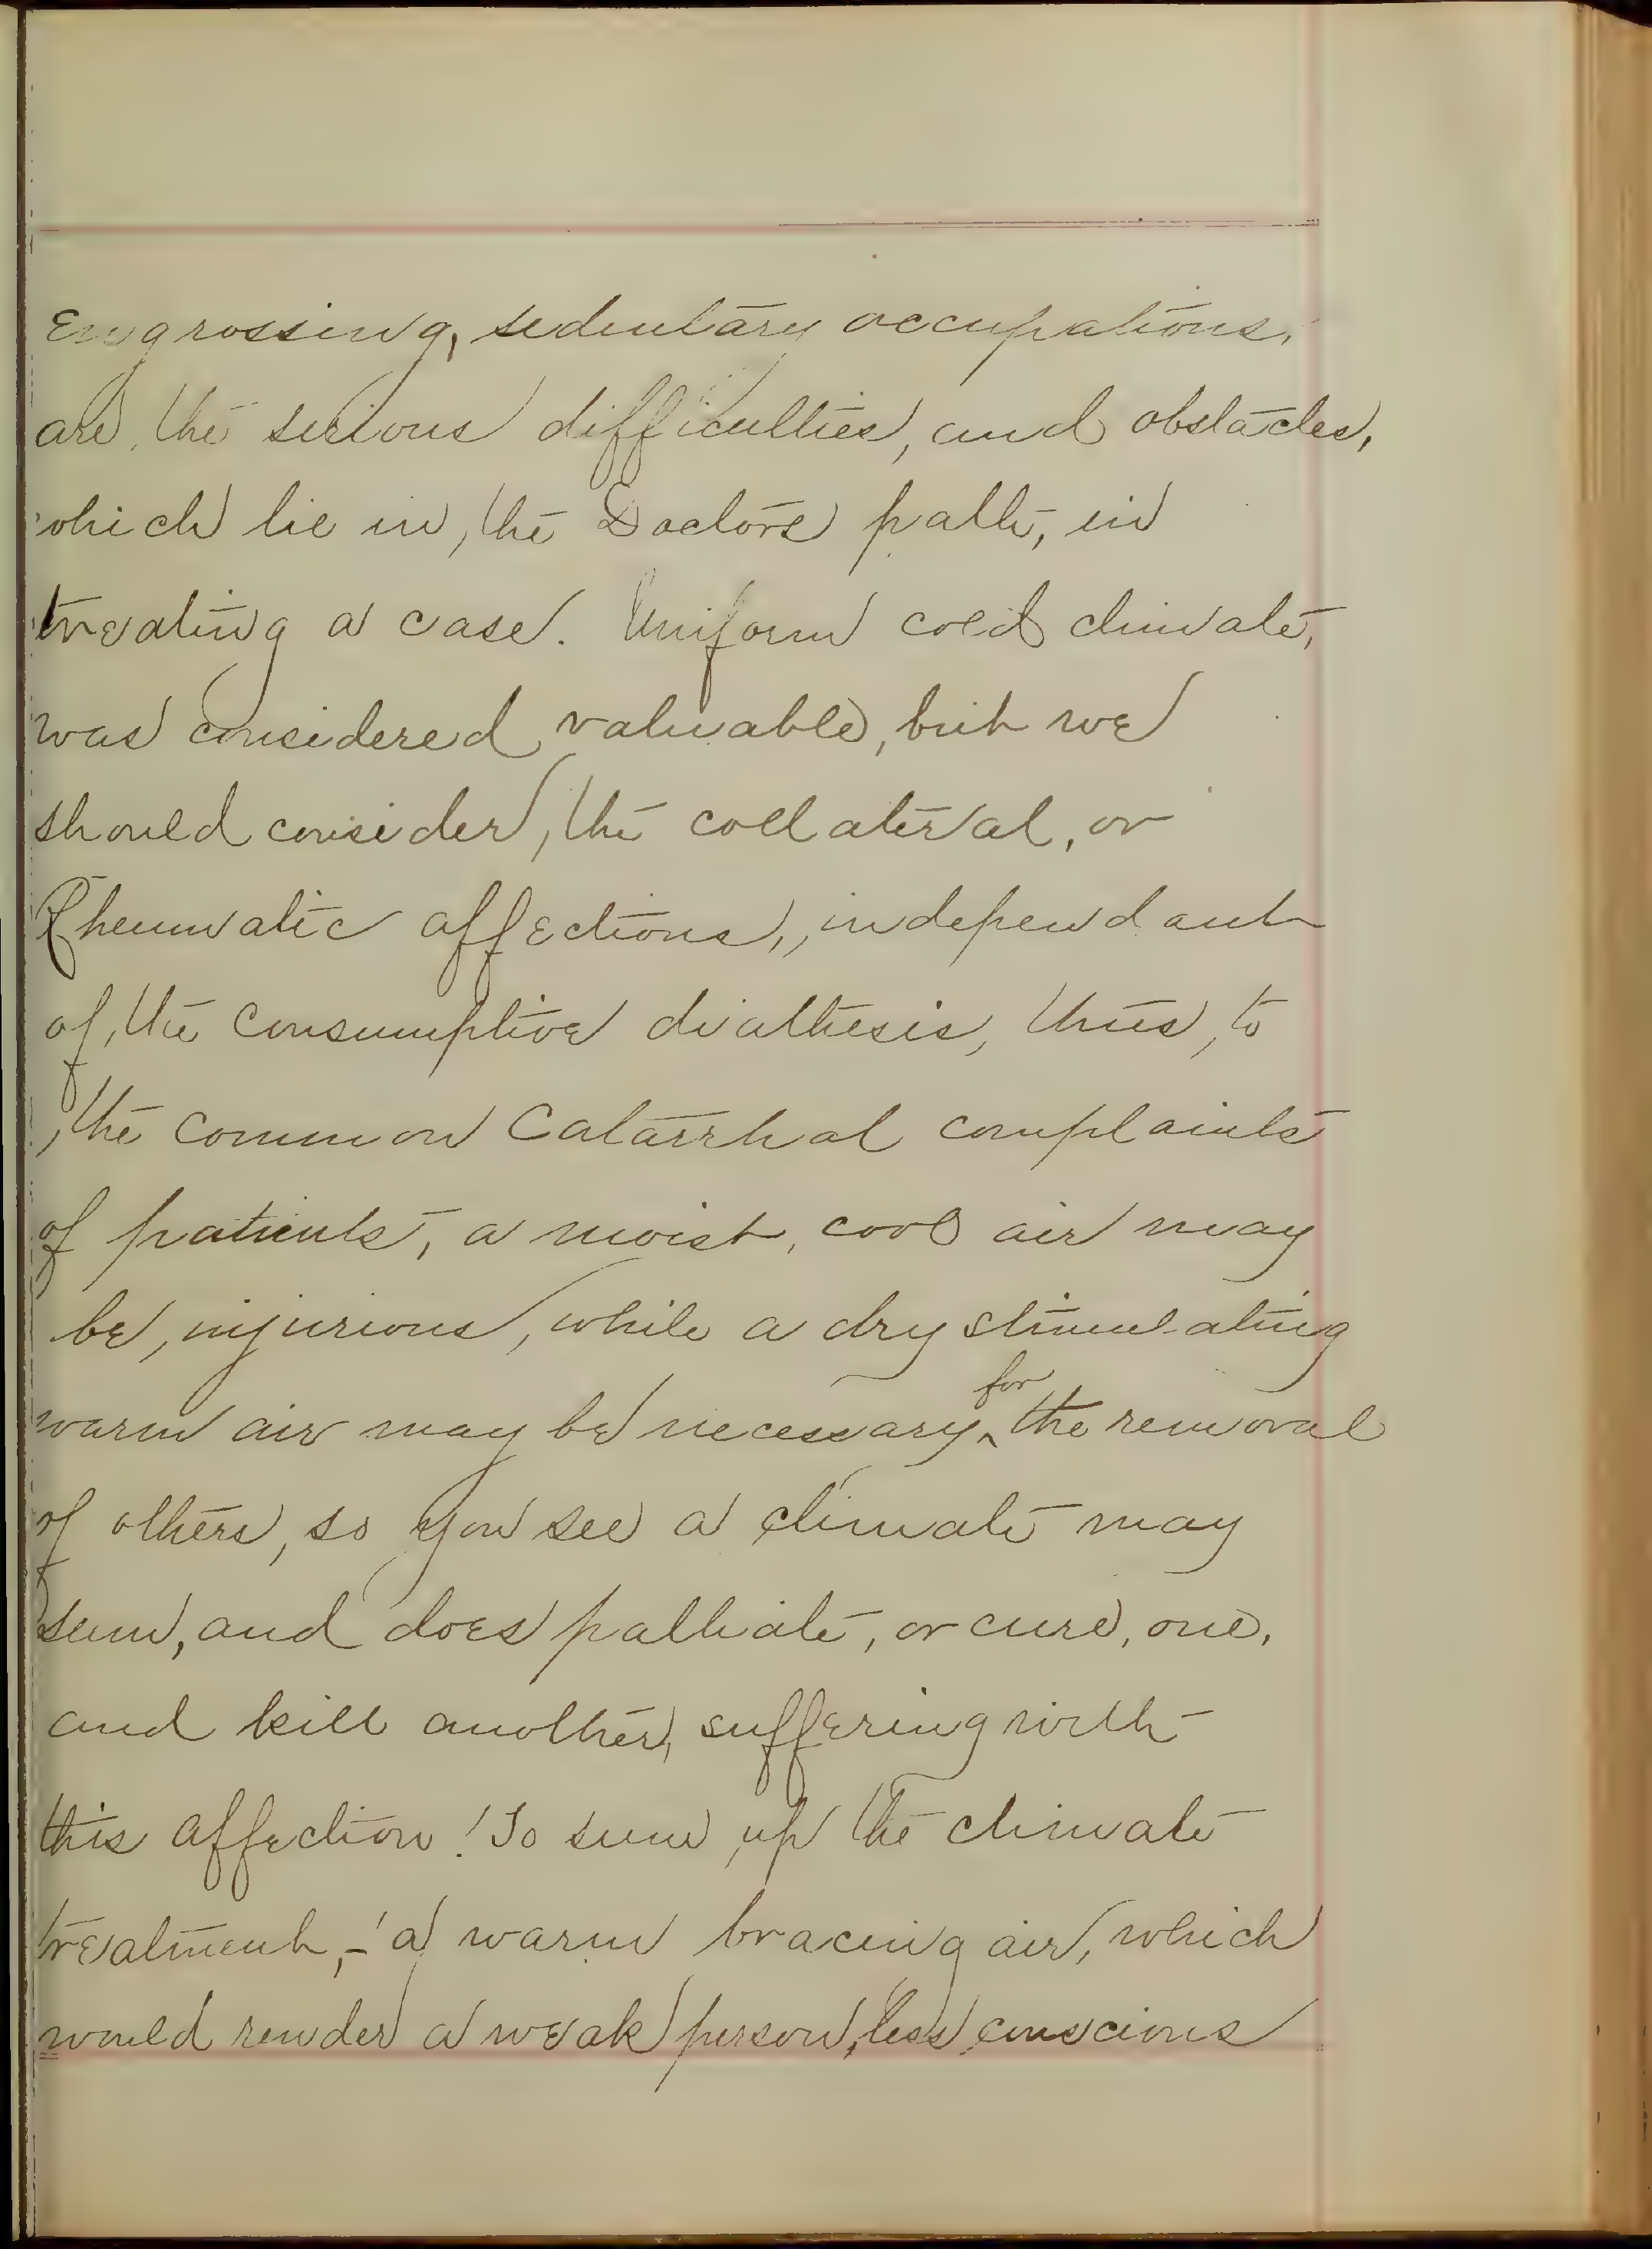 Engrossing, sedentary occupations,
are, the serious difficulties, and obstacles,
which lie in, the Doctors path, in
treating a case. Uniform cold climate,
was considered valuable, but we
should consider, the collateral, or
Rheumatic affections,, independant
of, the Consumptive diathesis, thus, to
, the common Catarrhal complaints
of patients, a moist, cool air may
be, injurious, while a dry stimulating
warm air may be necessary ^ for the removal
of others, so you see a climate may
seem, and does palliate, or cure, one,
and kill another, suffering with
this affection! To sum, up the climate
treatment,-'a warm bracing air, which
would render a weak person, less, conscious